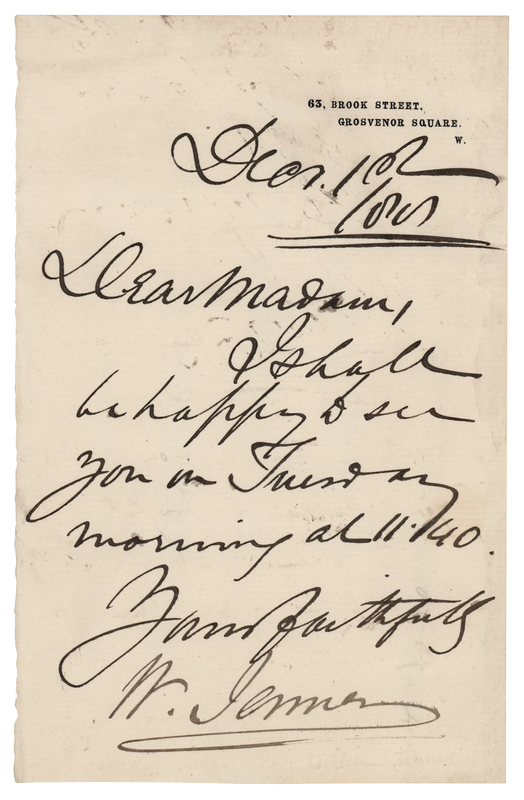 63, BROOK STREET,
GROSVENOR SQUARE.
W.
Decr. 1st
Dear Madam,
I shall
be happy to see
you on Tuesday
morning at 11.40.
Yours faithfully
W. Jenner